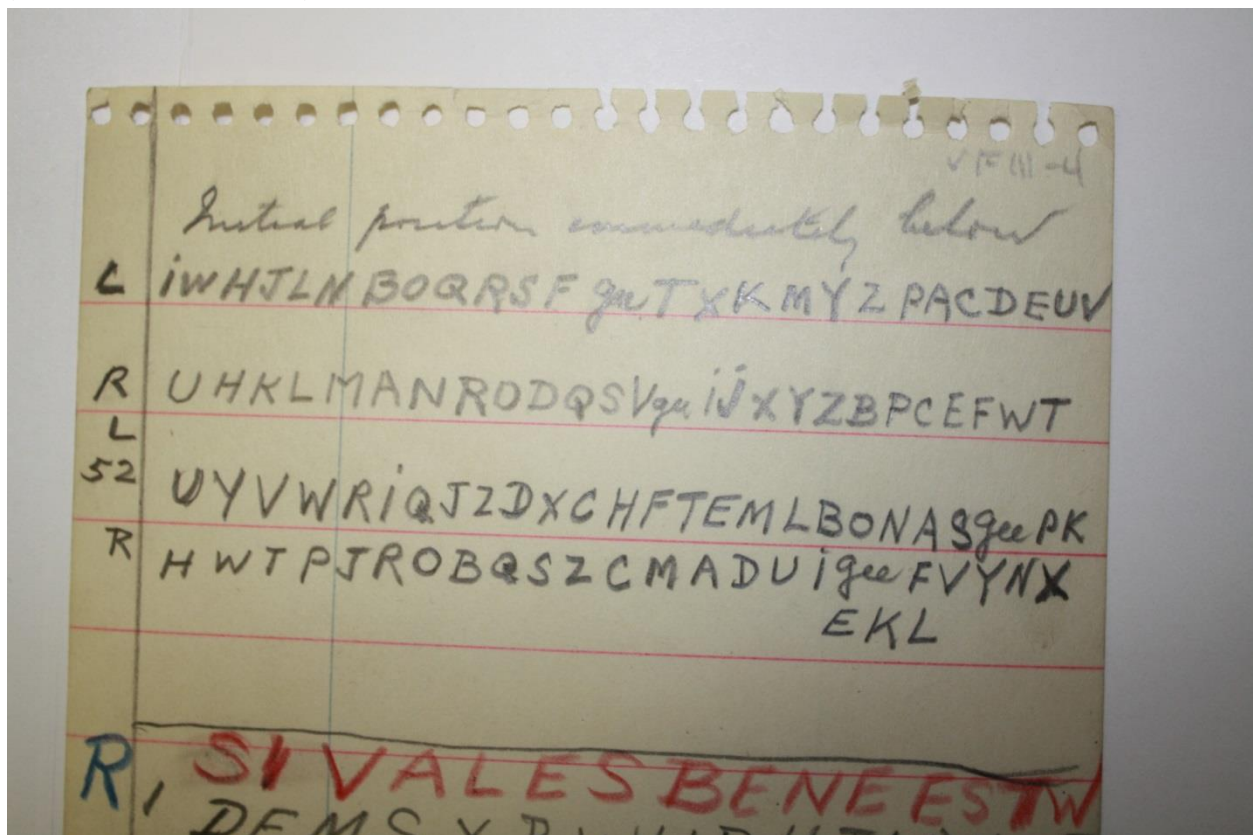 VF III-4
Initial position immediately below
L iWHJLNBOQRSFgTXKMYZPACDEUV
R UHKLMANRODQSVgijXYZBPCEFWT
L
52 UYVWRiQJZDXCHFTEMLBONASgPK
R HWTPJROBQSZCMADUigFVYNX
EKL
R, SIVALESBENEESTW